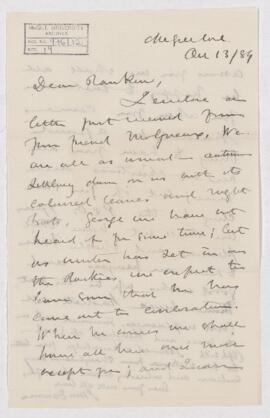 McGILL UNIVERSITY
ARCHIVES
ACC. NO.
REF. 19
Oct 13/89
Dear Rankin,
I enclose a
letter just received from
your friend McGreevy. We
are all as usual – autumn
settling down on us with its
coloured leaves and night
frosts. George we have not
heard of for some time; but
as winter has set in in
the Rockies we expect to
learn soon that he has
come out to civilization.
When he comes we shall
have all here once more
except you; and